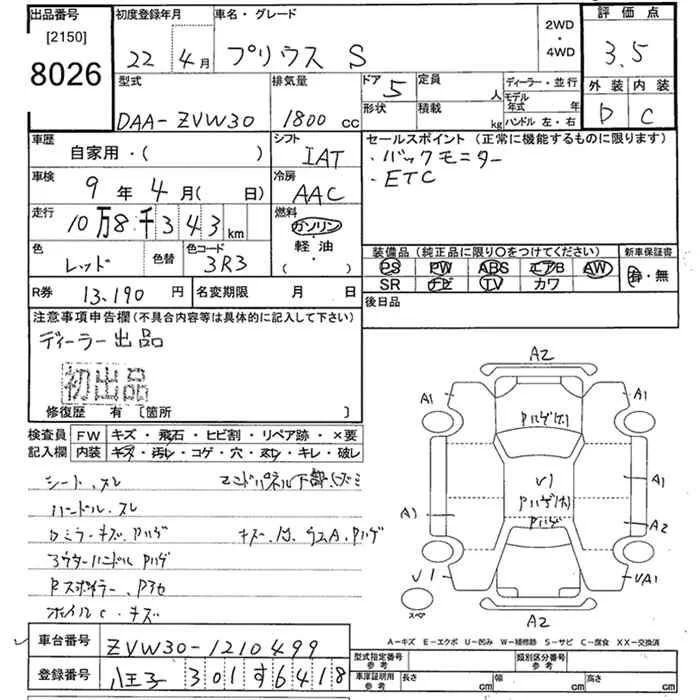 出品番号
[2150]
8026
初度登録年月
22年 4月
車名・グレード
プリウス S
2WD
・
4WD
評価点
3.5
外装 内装
D C
型式
DAA-ZVW30
排気量
1800 cc
ドア 5
形状
定員 人
積載 kg
ディーラー・並行
モデル年式 年
ハンドル 左・右
車歴
自家用・( )
シフト
IAT
車検
9年 4月( 日)
冷房
AAC
走行
10万8千343km
燃料
ガソリン
軽油
( )
色
レッド
色替
色コード
3R3
セールスポイント(正常に機能するものに限ります)
・バックモニター
・ETC
装備品(純正品に限り〇をつけてください)
新車保証書
PS PW ABS エアB AW
SR ナビ TV カワ
有・無
R券 13,190円
名変期限 月 日
後日品
注意事項申告欄(不具合内容等は具体的に記入して下さい)
ディーラー出品
初出品
修復歴 有[箇所 ]
検査員記入欄
FW キズ・飛石・ヒビ割・リペア跡・×要
内装 キズ・汚レ・コゲ・穴・スレ・キレ・破レ
シート、スレ
ハンドル、スレ
アウターハンドル Pハゲ
Rスポイラー、
ホイルC・キズ
A2
A1 A1
Pハゲ(小)
V1
Pハゲ
A1 A1
A2
V1 VA1
スペア
A2
A-キズ E-エクボ U-凹み W-補修跡 S-サビ C-腐食 XX-交換済
車台番号 ZVW30-1210499
登録番号 八王子 301す6418
型式指定番号 参考
類別区分番号 参考
車庫証明用 参考
長さ cm 幅 cm 高さ cm